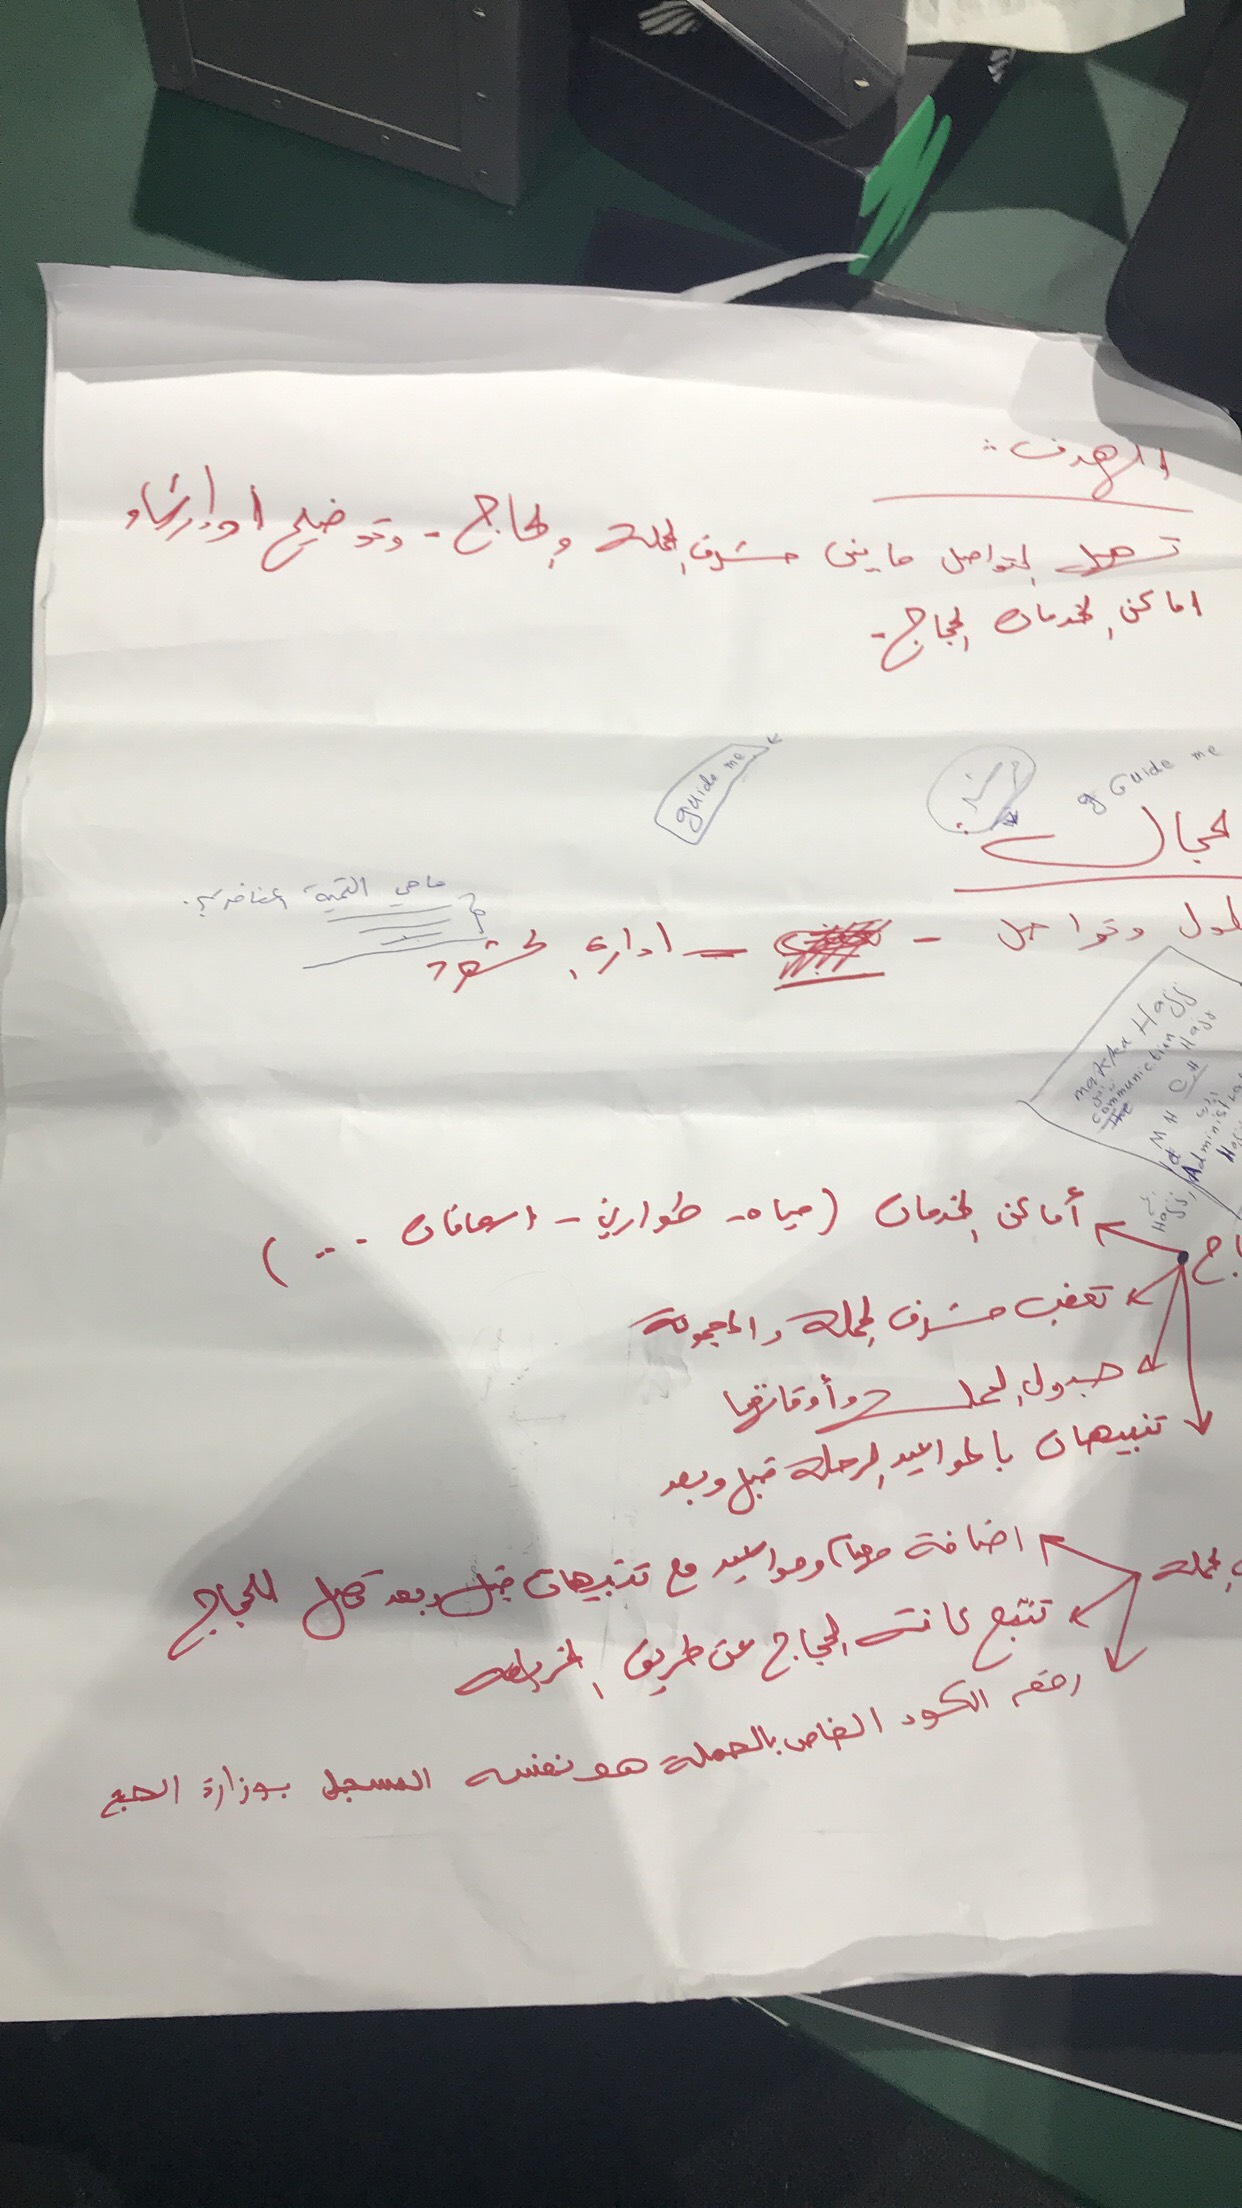 الهدف :
تسهيل التواصل ما بين مشرف الحملة والحاج - وتوضيح أو إرشاد
اماكن الخدمات الحجاج -
guide me
Guide me
المجال
ماهي القيمة
حلول وتواصل - - ادارة الحشود
makka Hajj
communiction
M H C H Hajj
Hajj,
أماكن الخدمات (مياه - طوارئ - اسعافات ...)
تعقب مشرف الحملة والمجموعة
جدول الحملة وأوقاتها
تنبيهات بالمواعيد الرحلة قبل وبعد
الحملة
اضافة مهام ومواعيد مع تنبيهات قبل وبعد تصل للحجاج
تتبع كافة الحجاج عن طريق الخريطة
رقم الكود الخاص بالحملة هو نفسه المسجل بوزارة الحج